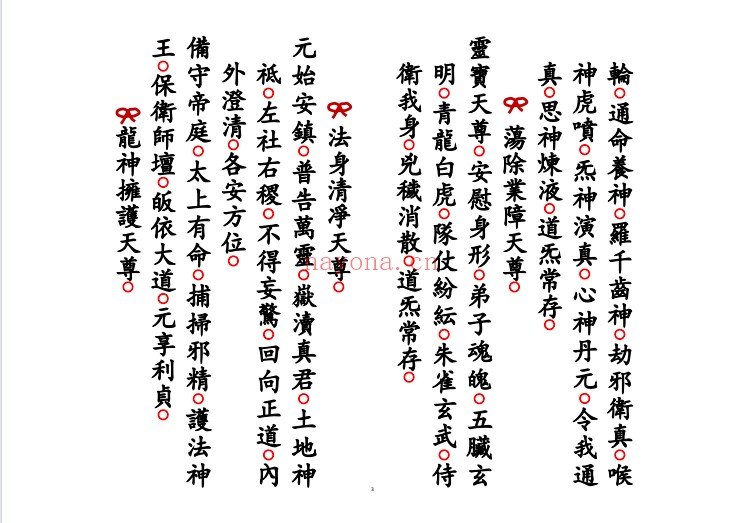 輪○通命養神○羅千齒神○劫邪衛真○喉
神虎噴○炁神演真○心神丹元○令我通
真○思神煉液○道炁常存○
蕩除業障天尊○
靈寶天尊○安慰身形○弟子魂魄○五臟玄
明○青龍白虎○隊仗紛紜○朱雀玄武○侍
衛我身○兇穢消散○道炁常存○
法身清淨天尊○
元始安鎮○普告萬靈○嶽瀆真君○土地神
祗○左社右稷○不得妄驚○回向正道○內
外澄清○各安方位○
備守帝庭○太上有命○捕掃邪精○護法神
王○保衛師壇○皈依大道○元享利貞○
龍神擁護天尊○
nayona.cn
3